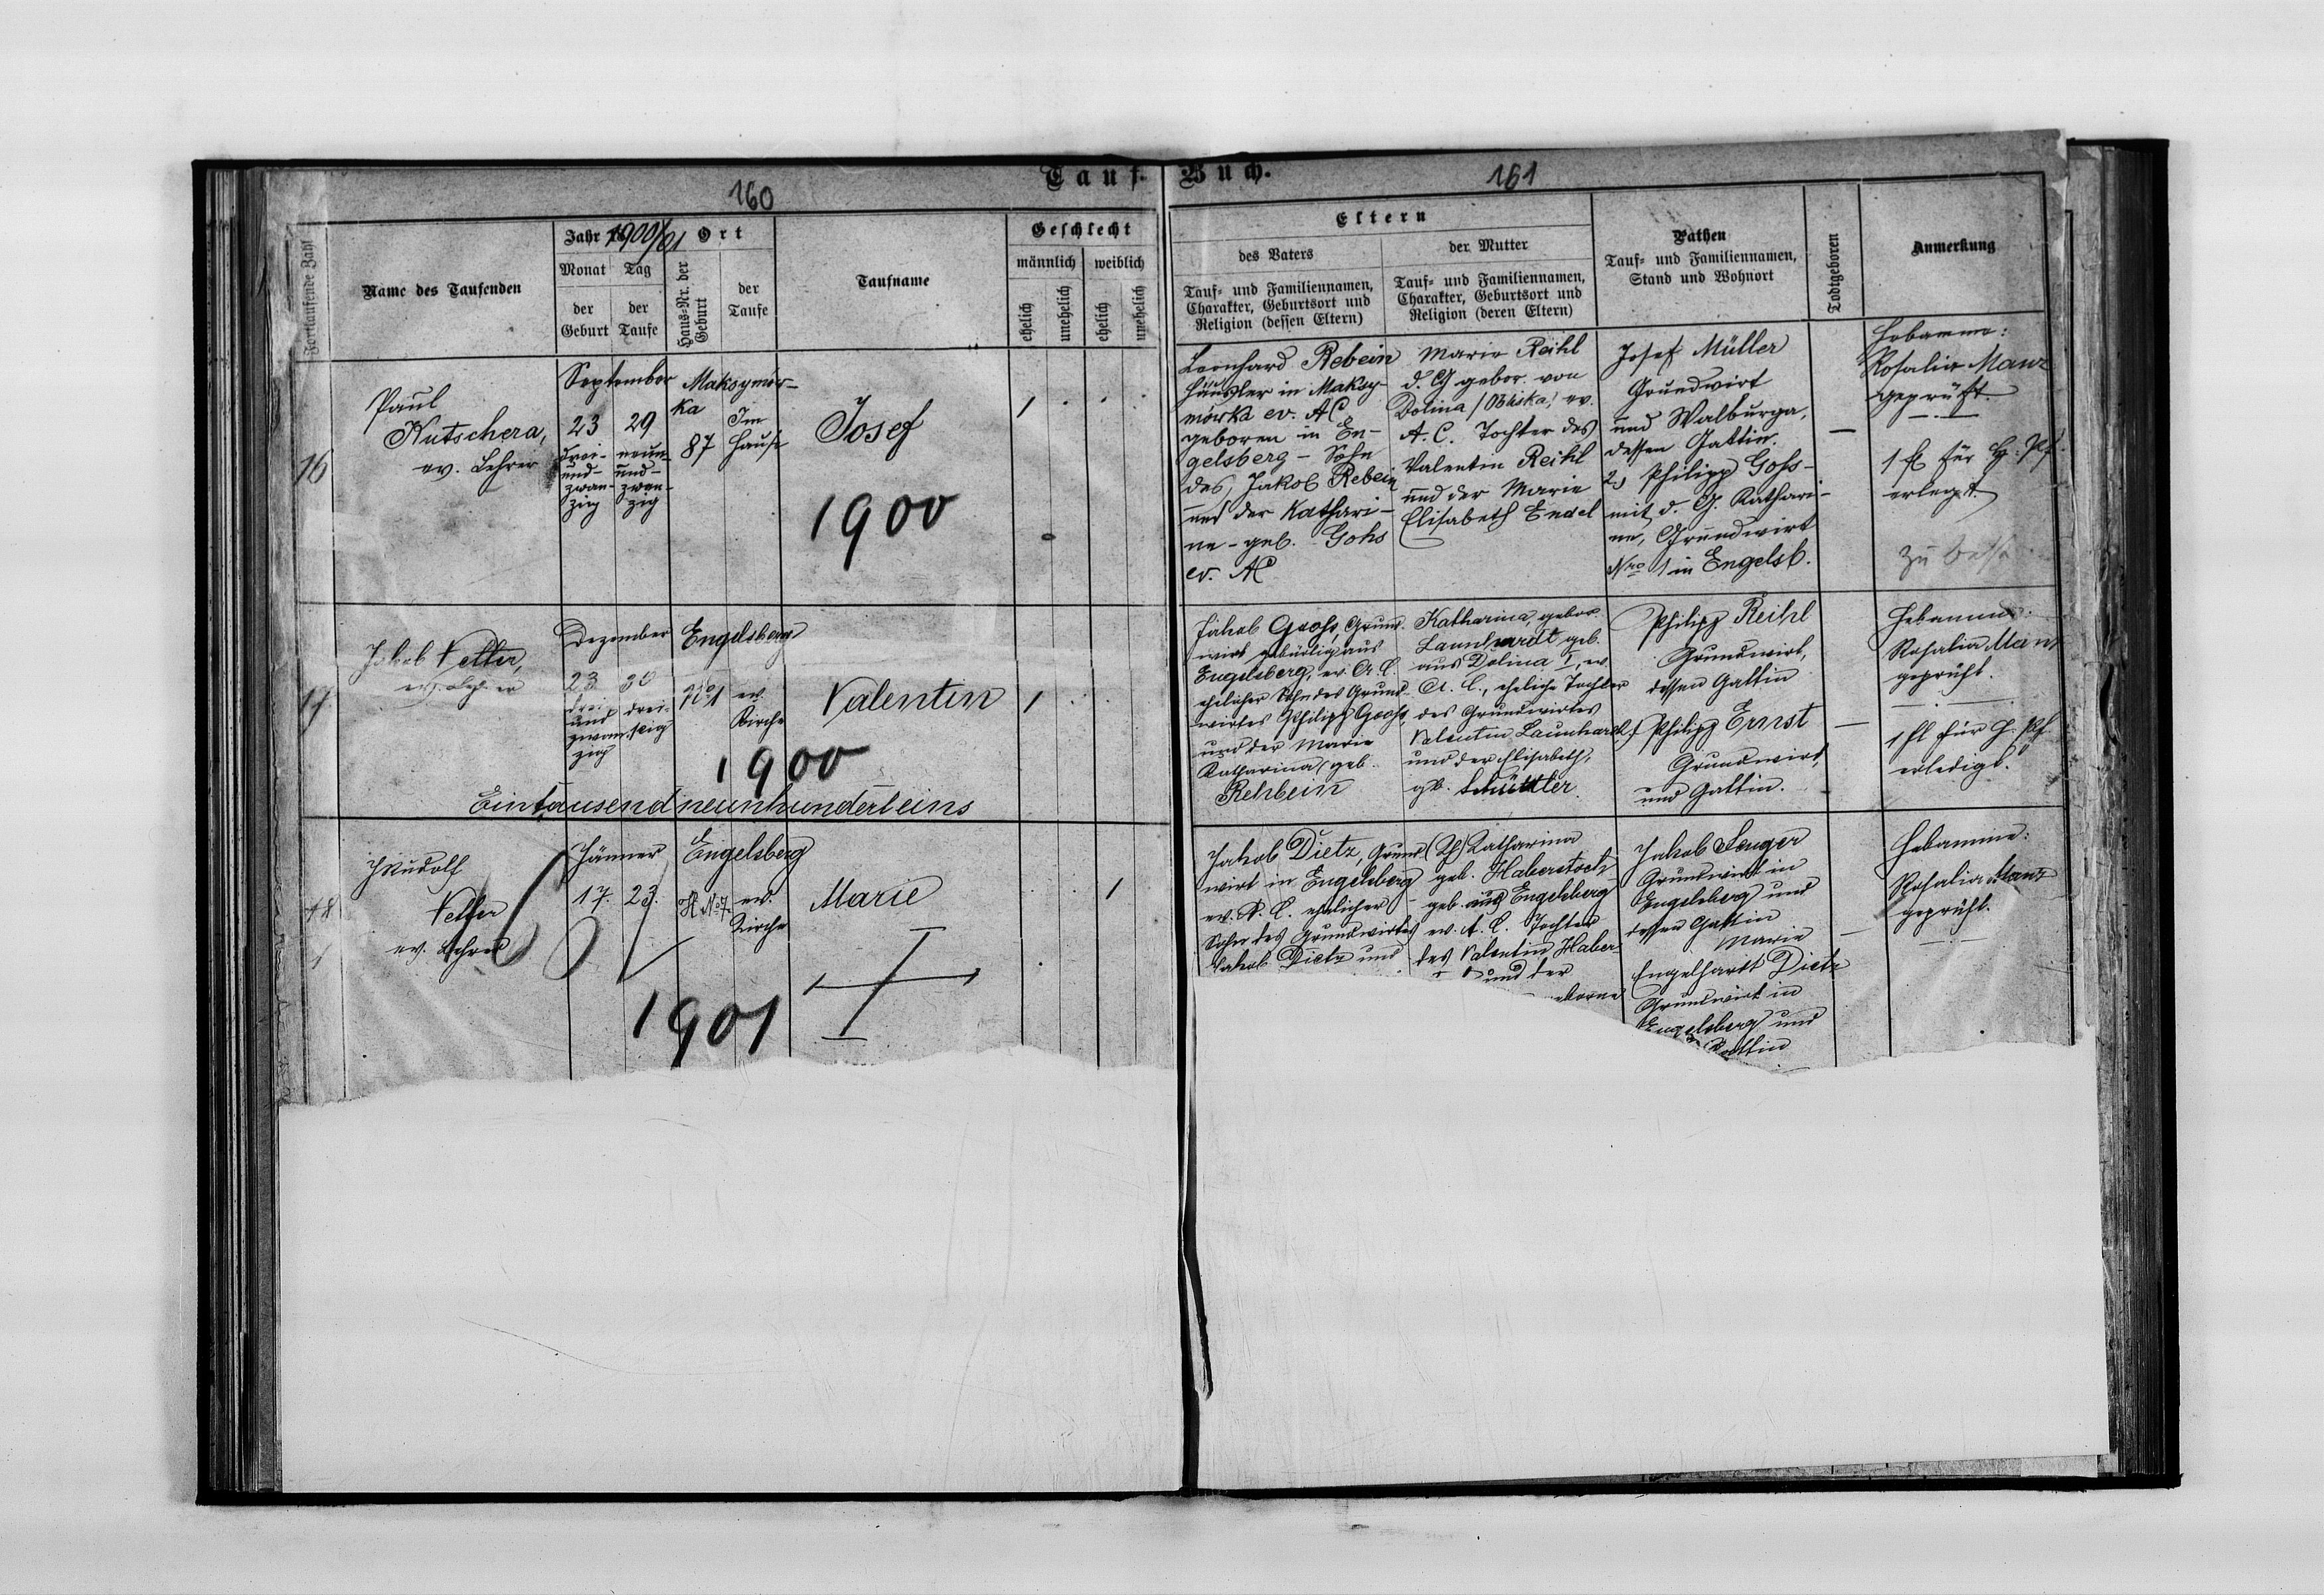 Tauf-Buch.
160
161
Fortlaufende Zahl
Name des Taufenden
Jahr 1900/01
Ort
Monat
Tag
der Geburt
der Taufe
Haus-Nr. der Geburt
der Taufe
Taufname
Geschlecht
männlich
weiblich
ehelich
unehelich
ehelich
unehelich
Eltern
des Vaters
Tauf- und Familiennamen,
Charakter, Geburtsort und
Religion (dessen Eltern)
der Mutter
Tauf- und Familiennamen,
Charakter, Geburtsort und
Religion (deren Eltern)
Pathen
Tauf- und Familiennamen,
Stand und Wohnort
Todtgeboren
Anmerkung
16
Paul
Kutschera,
ev. Lehrer
September
23
drei-
und-
zwan-
zig
29
neun-
und-
zwan-
zig
Maksymów-
ka
87
Im
Hause
Josef
1900
1
Leonhard Rebein
Häusler in Maksy-
mówka ev. AC
geboren in En-
gelsberg - Sohn
des Jakob Rebein
und der Kathari-
ne - geb. Gohs
ev. AC
Marie Reihl
d. G gebor. von
Dolina ev.
A. C. Tochter des
Valentin Reihl
und der Marie
Elisabeth Endel
Josef Müller
Grundwirt
und Walburga,
dessen Gattin.
2.) Philipp Gohs -
mit d. G. Kathari-
ne, Grundwirt
Nro 1 in Engelsb.
—
Hebamme:
Rosalia Manz
geprüft.
1 fl für H. Pf.
erlegt.
zu
17
Jakob Vetter,
ev. Lehrer
Dezember
23
drei
und
zwan
zig
30
drei-
szig
Engelsberg
No 1
ev.
Kirche
Valentin
1900
1
Jakob Goohs, Grund-
wirt gebürtig aus
Engelsberg, ev. A. C.
ehelicher Sohn des Grund-
wirtes Philipp Goohs
und der Marie
Katharina geb.
Rehbein
Katharina, gebor.
Launhardt geb.
aus Dolina, ev.
A. C., eheliche Tochter
des Grundwirtes
Valentin Launhardt
und der Elisabeth,
gb. Schüttler
Philipp Reihl
Grundwirt,
dessen Gattin
Philipp Ernst
Grundwirt,
und Gattin.
—
Hebamme:
Rosalia Manz
geprüft.
1 fl für H. Pf
erledigt.
Eintausend neunhunderteins
18
1
Rudolf
Vetter
ev. Lehrer
Jänner
17.
23.
Engelsberg
H No 7.
ev.
Kirche
Marie
1901
1
Jakob Dietz, Grund
wirt in Engelsberg
ev. A. C. ehelicher
Sohn des Grundwirtes
Jakob Dietz und
Katharina
geb. Haberstock
geb. aus Engelsberg
ev. A. C. Tochter
des Valentin Haber-
und der
eborne
Jakob Senger
Grundwirt in
Engelsberg und
dessen Gattin
Marie
Engelhardt Dietz
Grundwirt in
Engelsberg und
Gattin
—
Hebamme:
Rosalia Manz
geprüft.